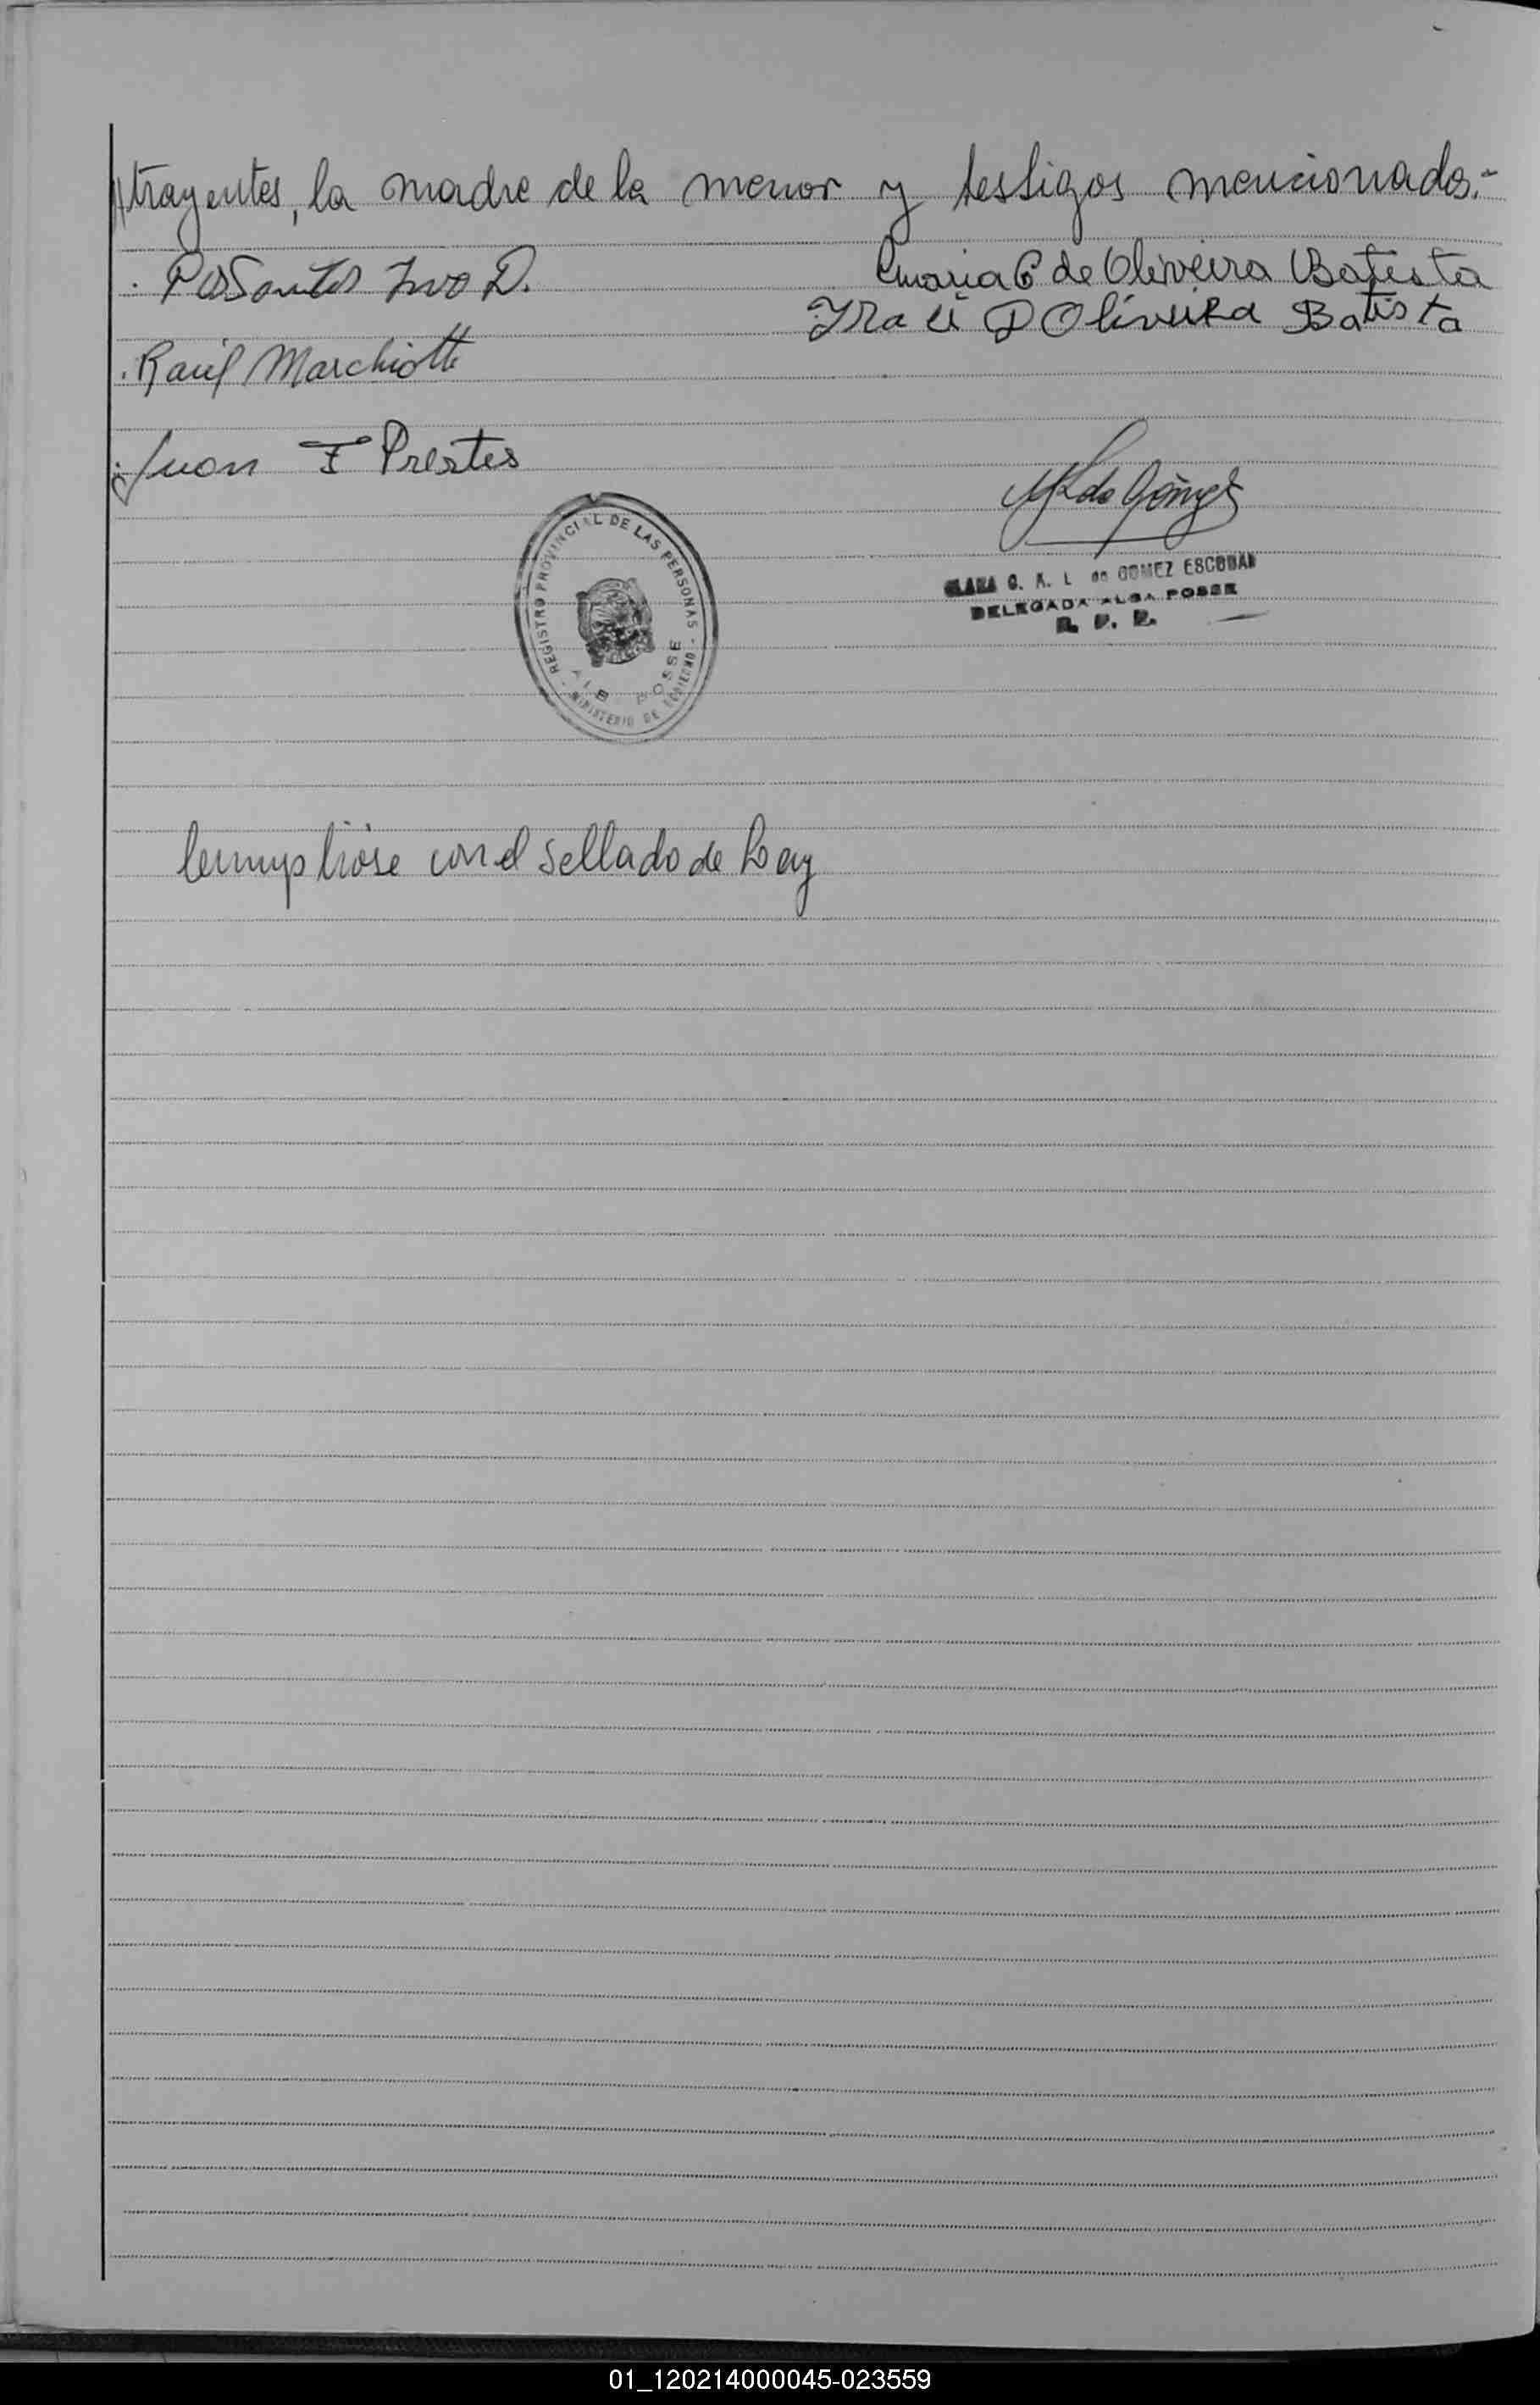 trayentes, la madre de la menor y testigos mencionados.-
Maria C de Oliveira Batista
DosSantos Ivo D.
Iraci D Oliveira Batista
Raul Marchiotti
Juan F Prestes
REGISTRO PROVINCIAL DE LAS PERSONAS - MINISTERIO DE GOBIERNO -
ALBA POSSE
CLARA G. K. L de GOMEZ ESCOBAR
DELEGADA ALBA POSSE
R. P. P.
Cumpliose con el sellado de Ley
01_120214000045-023559